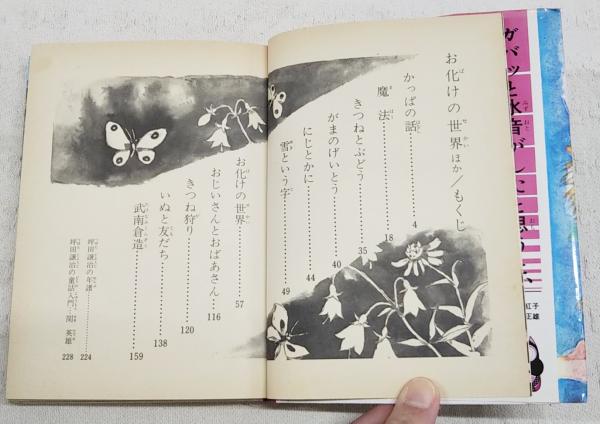 お化けの世界ほか／もくじ
かっぱの話 4
魔法 18
きつねとぶどう 35
がまのげいとう 40
にじとかに 44
雪という字 49
お化けの世界 57
おじいさんとおばあさん 116
きつね狩り 120
いぬと友だち 138
武南倉造 159
坪田譲治の年譜 224
坪田譲治の童話入門 関 英雄 228
ガバッと水音がし
紅子
正雄